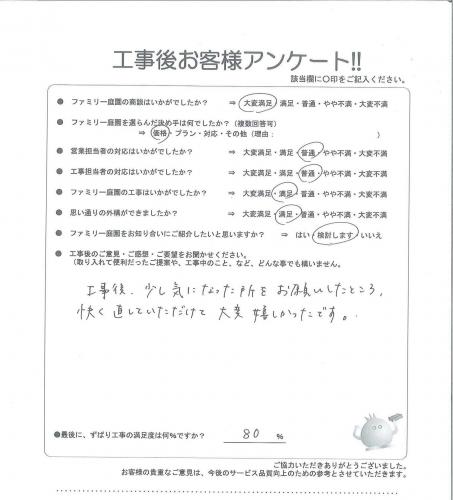 工事後お客様アンケート!!
該当欄に〇印をご記入ください。
● ファミリー庭園の商談はいかがでしたか? ⇒ 大変満足・満足・普通・やや不満・大変不満
● ファミリー庭園を選らんだ決め手は何でしたか?(複数回答可)
⇒ 価格・プラン・対応・その他(理由: )
● 営業担当者の対応はいかがでしたか? ⇒ 大変満足・満足・普通・やや不満・大変不満
● 工事担当者の対応はいかがでしたか? ⇒ 大変満足・満足・普通・やや不満・大変不満
● ファミリー庭園の工事はいかがでしたか? ⇒ 大変満足・満足・普通・やや不満・大変不満
● 思い通りの外構ができましたか? ⇒ 大変満足・満足・普通・やや不満・大変不満
● ファミリー庭園をお知り合いにご紹介したいと思いますか? ⇒ はい・検討します・いいえ
● 工事後のご意見・ご感想・ご要望をお聞かせください。
(取り入れて便利だったご提案や、工事中のこと、など、どんな事でも構いません。
工事後、少し気になった所をお願いしたところ、
快く直していただけて大変嬉しかったです。
●最後に、ずばり工事の満足度は何%ですか? 80 %
ご協力いただきありがとうございました。
お客様の貴重なご意見は、今後のサービス品質向上のための参考とさせていただきます。